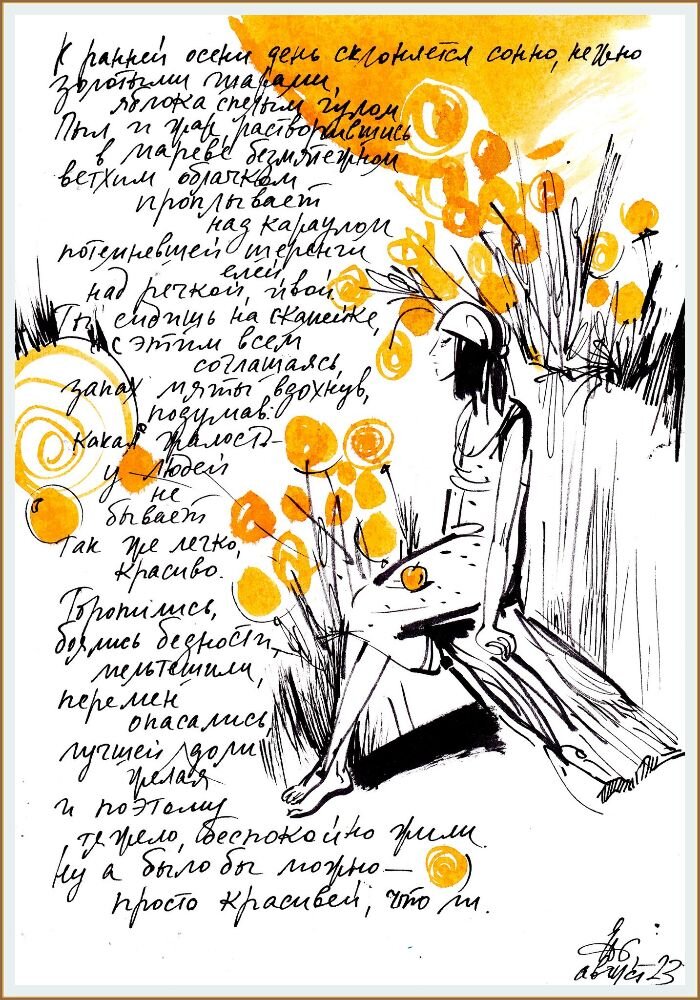 К ранней осени день склоняется сонно, нежно
золотыми шарами,
яблока спелым гулом
Пыл и жар, растворившись
в мареве безмятежном
ветхим облачком
проплывает
над караулом
потемневшей шеренги
елей,
над речкой, ивой
Ты сидишь на скамейке,
с этим всем
соглашаясь,
запах мяты вдохнув,
подумав:
какая жалость –
у людей
не
бывает
так же легко,
красиво.
Торопились,
боялись бедности,
мельтешили,
перемен
опасались
лучшей доли
желая
и поэтому
тяжело, беспокойно жили.
Ну а было бы можно –
просто красивей, что ли.
август 23